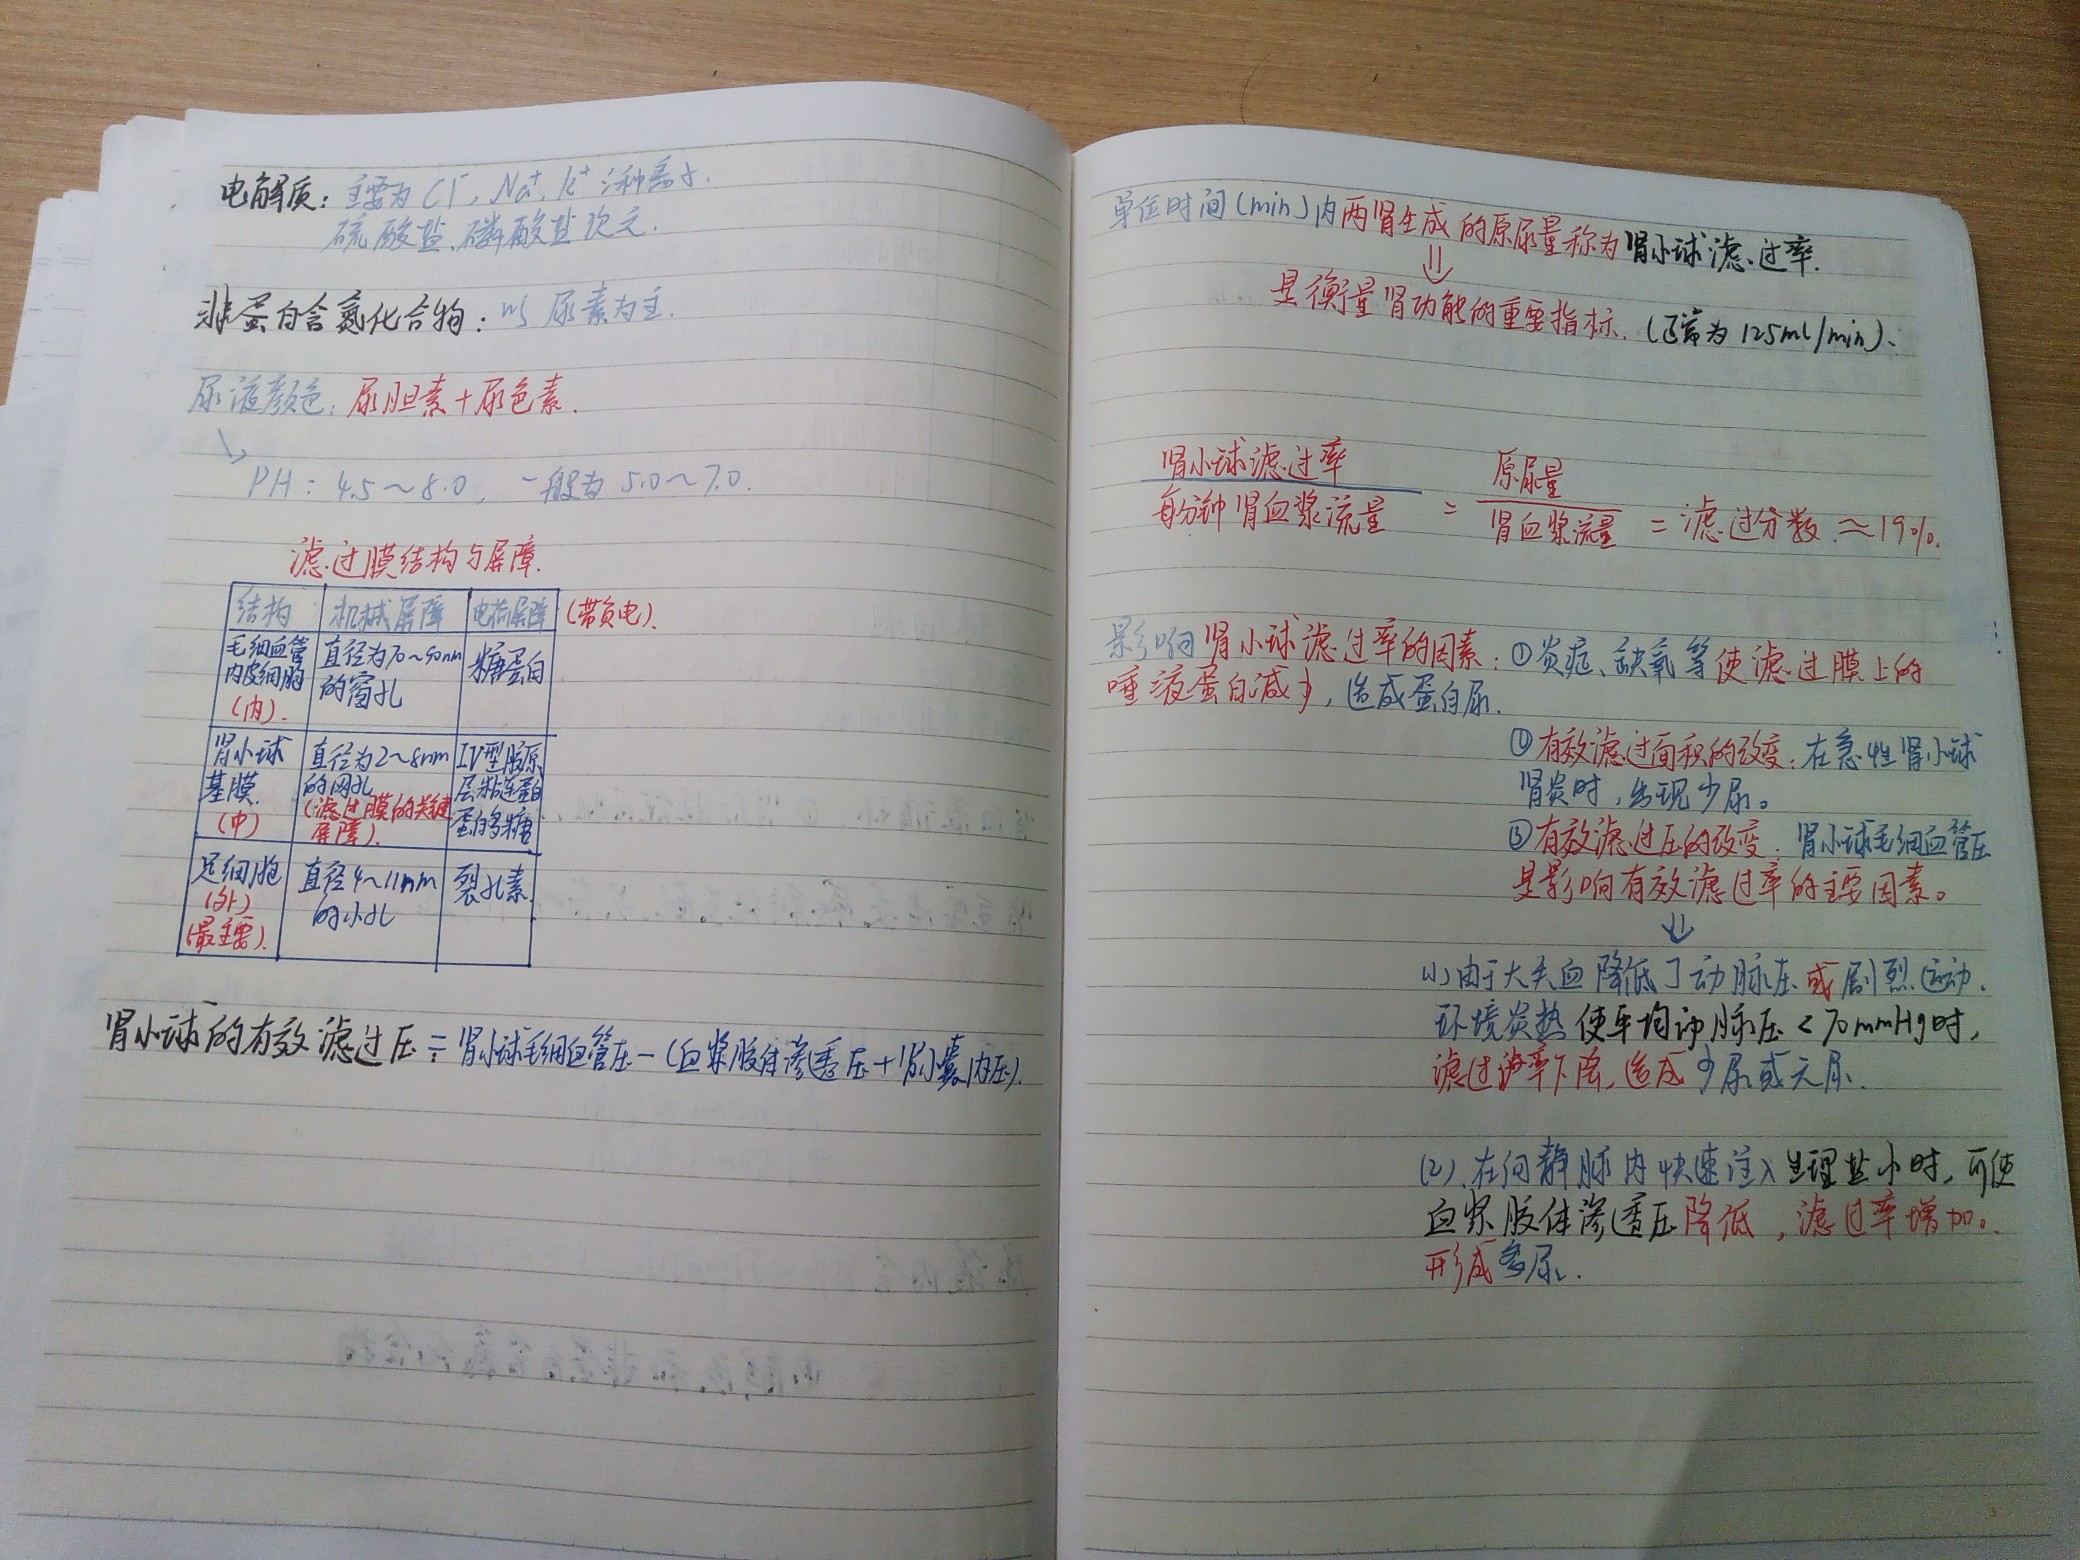 电解质：主要为Cl⁻，Na⁺，K⁺三种离子．
硫酸盐、磷酸盐次之．
非蛋白含氮化合物：以尿素为主．
尿液颜色：尿胆素＋尿色素．
PH：4.5～8.0，一般为5.0～7.0．
滤过膜结构与屏障．
结构 机械屏障 电荷屏障 (带负电)．
毛细血管内皮细胞(内)． 直径为70～90nm的窗孔 糖蛋白
肾小球基膜．(中) 直径为2～8nm的网孔(滤过膜的关键屏障)． IV型胶原 层粘连蛋白 蛋白多糖
足细胞(外)(最主要)． 直径4～11nm的小孔 裂孔素
肾小球的有效滤过压＝肾小球毛细血管压－(血浆胶体渗透压＋肾小囊内压)．
单位时间(min)内两肾生成的原尿量称为肾小球滤过率．
⇓
是衡量肾功能的重要指标．(正常为125ml/min)、
肾小球滤过率/每分钟肾血浆流量＝原尿量/肾血浆流量＝滤过分数．≈19%．
影响肾小球滤过率的因素：①炎症、缺氧等使滤过膜上的
唾液蛋白减少，造成蛋白尿．
②有效滤过面积的改变：在急性肾小球
肾炎时，出现少尿。
③有效滤过压的改变：肾小球毛细血管压
是影响有效滤过率的主要因素。
⇓
(1)由于大失血降低了动脉压或剧烈运动．
环境炎热使平均动脉压＜70mmHg时，
滤过率下降，造成少尿或无尿．
(2)．在向静脉内快速注入生理盐水时，可使
血浆胶体渗透压降低，滤过率增加。
形成多尿．